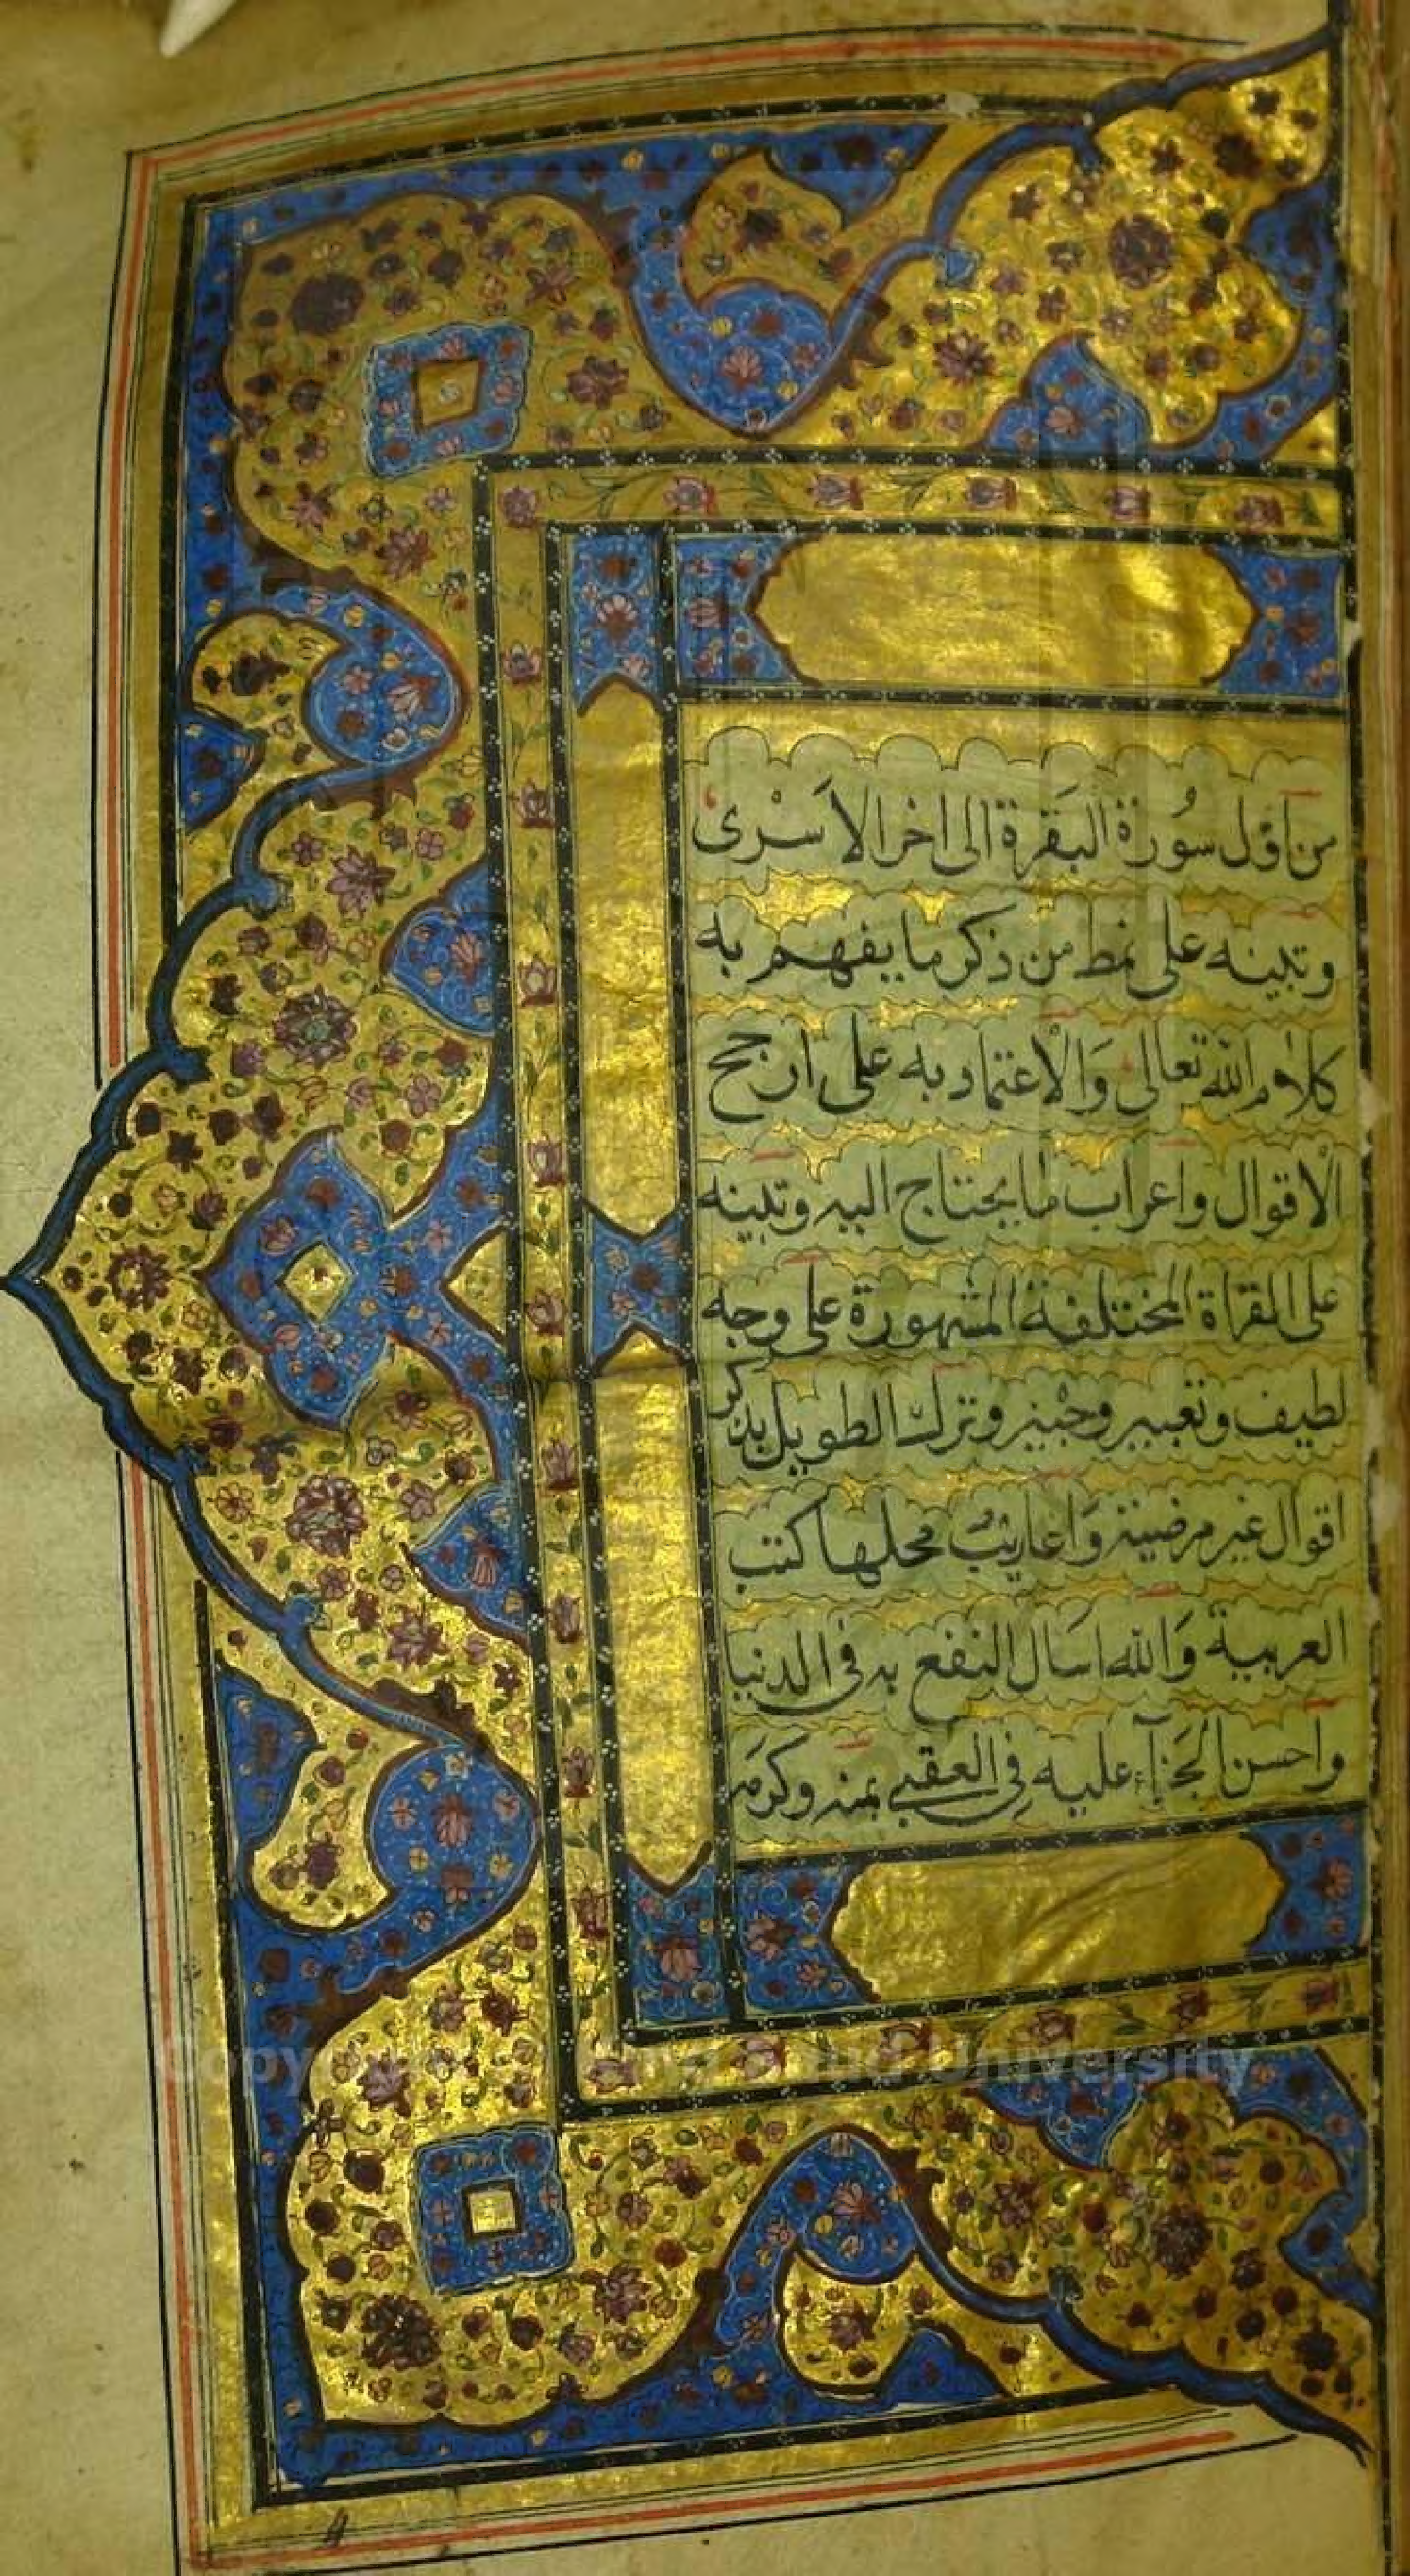 من اوّل سُورة البَقرة الى اخر الاَسْرى
وتبينه على نمط من ذكر ما يفهم به
كلام الله تعالى وَالْاعتماد به على ارجح
الاقوال واعراب ما يحتاج اليه وتبينه
على القراة المختلفة المشهورة على وجه
لطيف وتعبير وجيز وترك الطويل بذكر
اقوال غير مرضية وَاعاريبُ محلها كتب
العربية وَالله اسَال النفع به فى الدنيا
واحسن الجَزآء عليه فِى العقبى بمنه وكرمه
Copyright © King Saud University